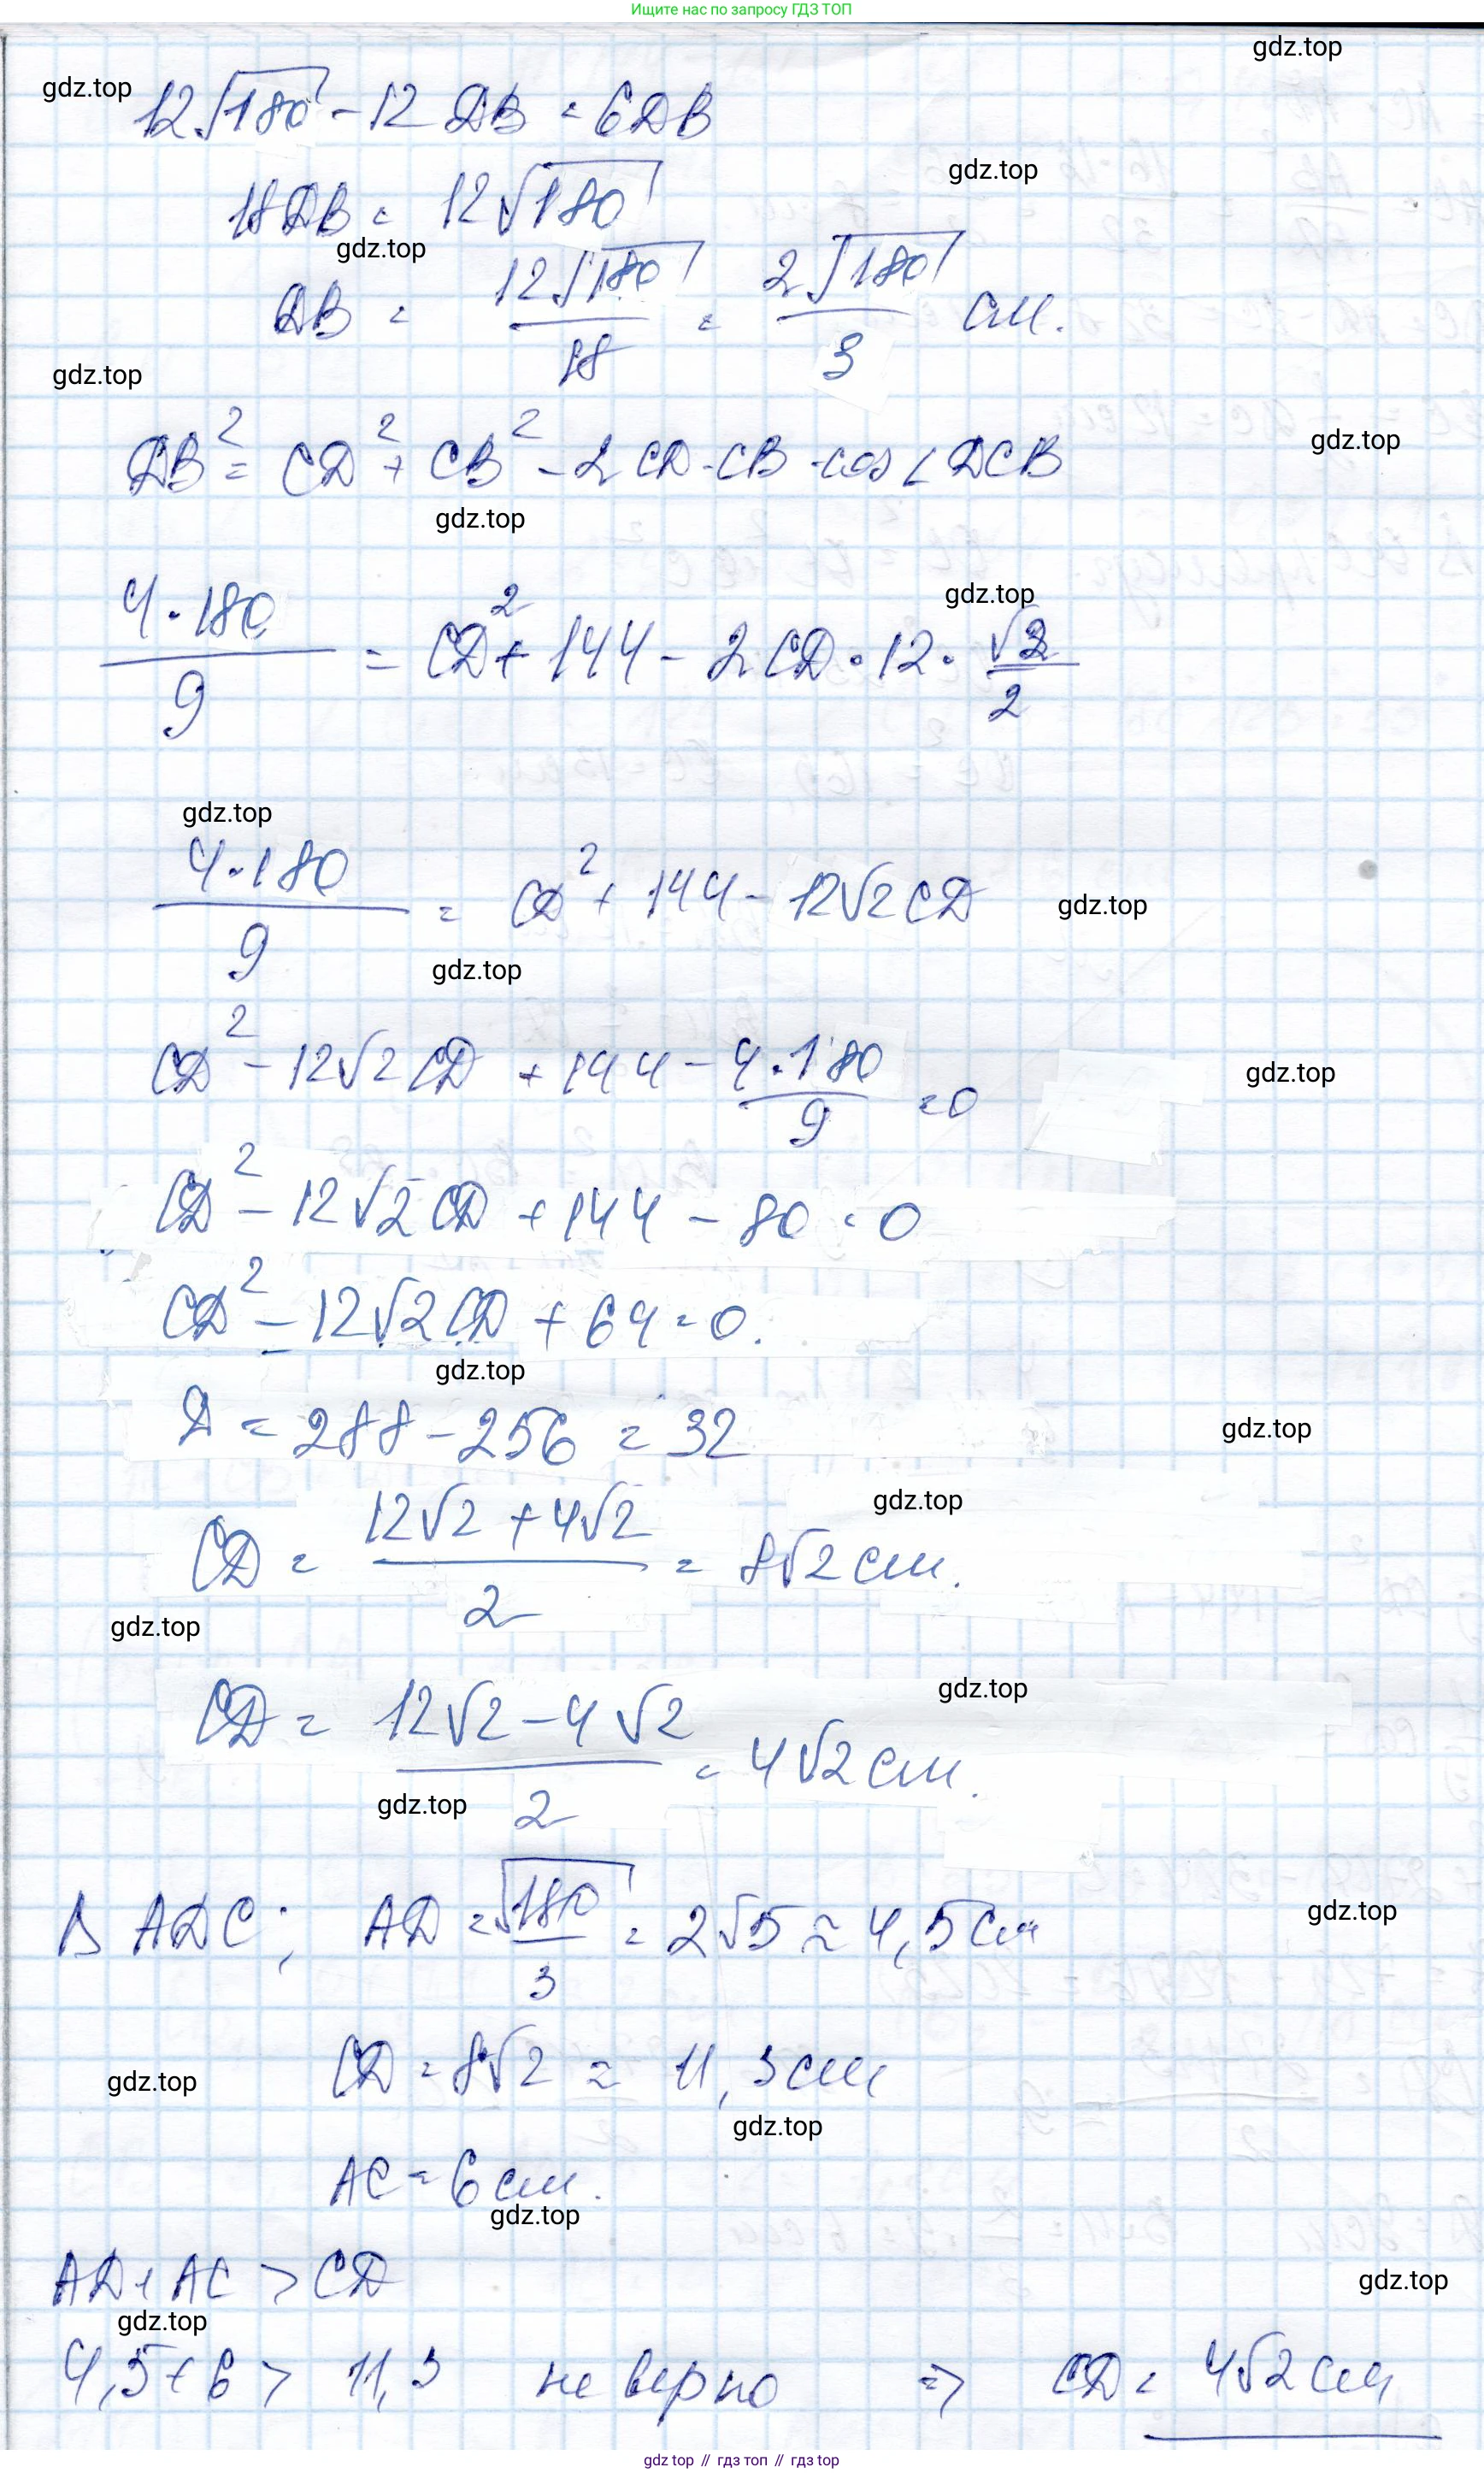 Ищите нас по запросу ГДЗ ТОП
gdz.top
gdz.top
12√180 - 12DB = 6DB
gdz.top
18DB = 12√180
gdz.top
DB = 12√180/18 = 2√180/3 см.
gdz.top
gdz.top
DB² = CD² + CB² - 2CD·CB·cos∠DCB
gdz.top
gdz.top
4·180/9 = CD² + 144 - 2CD·12·√2/2
gdz.top
4·180/9 = CD² + 144 - 12√2CD
gdz.top
gdz.top
CD² - 12√2CD + 144 - 4·180/9 = 0
gdz.top
CD² - 12√2CD + 144 - 80 = 0
CD² - 12√2CD + 64 = 0.
gdz.top
D = 288 - 256 = 32
gdz.top
gdz.top
CD = (12√2 + 4√2)/2 = 8√2 см.
gdz.top
gdz.top
CD = (12√2 - 4√2)/2 = 4√2 см.
gdz.top
Δ ADC; AD = √180/3 = 2√5 ≈ 4,5 см
gdz.top
CD = 8√2 ≈ 11,3 см
gdz.top
gdz.top
AC = 6 см.
gdz.top
AD + AC > CD
gdz.top
gdz.top
4,5 + 6 > 11,3 не верно ⇒ CD = 4√2 см
gdz top // гдз топ // гдз top